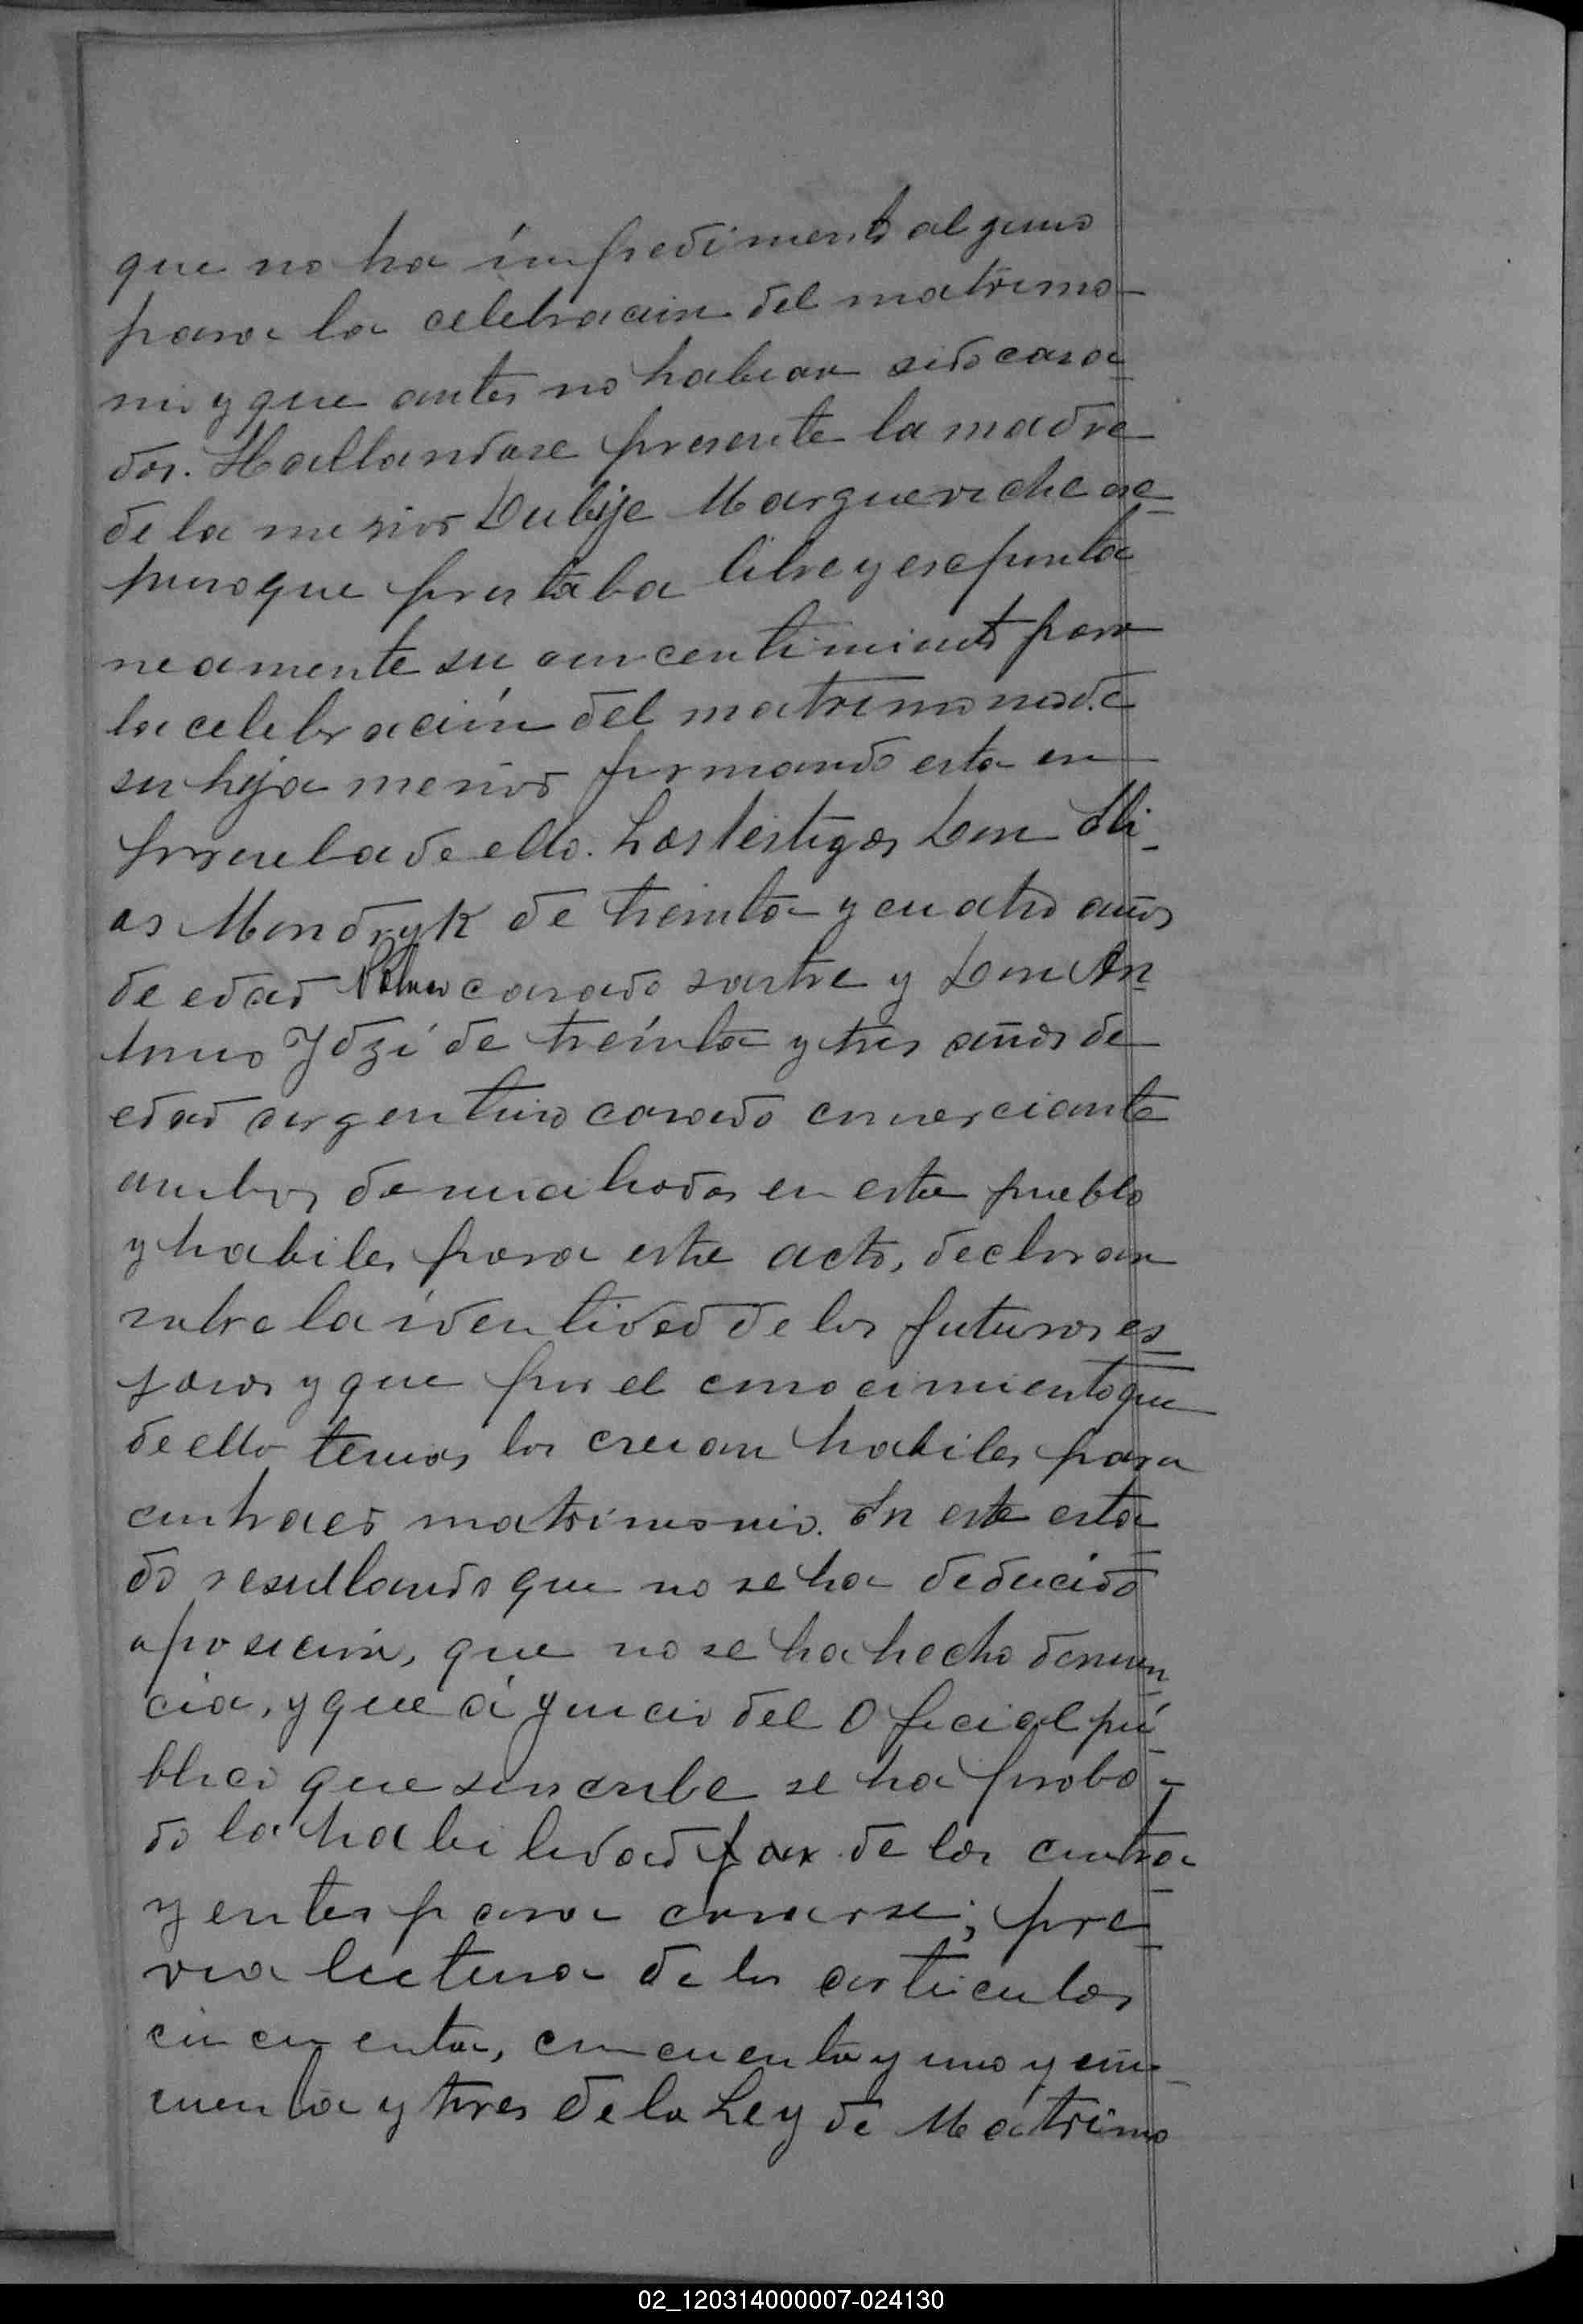 que no ha impedimento alguno
para la celebracion del matrimo-
nio y que antes no habian sido casa
dos. Hallandose presente la madre
de la menor Margueriche
puso que prestaba libre y esponta
neamente su concentimiento para
la celebración del matrimonio de
su hija menor firmando esta en
prueba de ello. Los testigos Don Eli-
as Mondryk de treinta y cuatro años
de edad casado sastre y Don An
tonio Idzi de treinta y tres años de
edad argentino casado comerciante
ambos domiciliados en este pueblo
y habiles para este acto, declaran
sobre la identidad de los futuros es
posos y que por el conocimiento que
de ello temos los creian habiles para
contraer matrimonio. En este esta
do resultando que no se ha deducido
oposicion, que no se ha hecho denun
cia, y que á juicio del Oficial pú
blico que suscribe se ha proba-
do la habilidad de los contra
yentes para casarse; pre
via lectura de los articulos
cincuenta, cincuenta y uno y cin-
cuenta y tres de la Ley de Matrimo
02_120314000007-024130